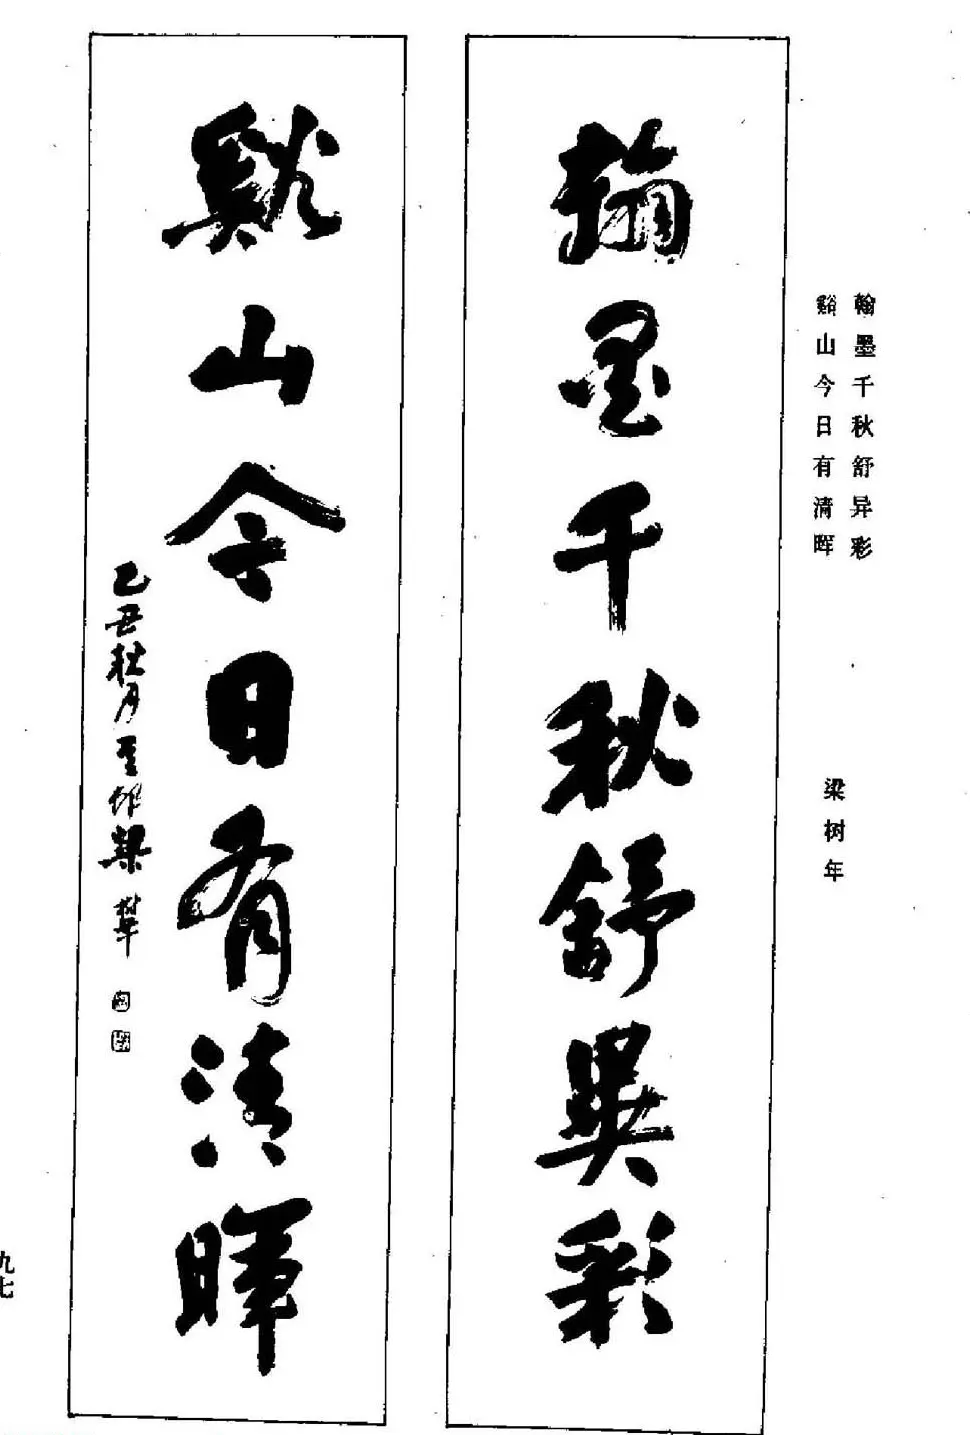 翰墨千秋舒异彩
谿山今日有清晖
梁树年
翰墨千秋舒異彩
谿山今日有清暉
乙丑秋月
梁樹年
九七